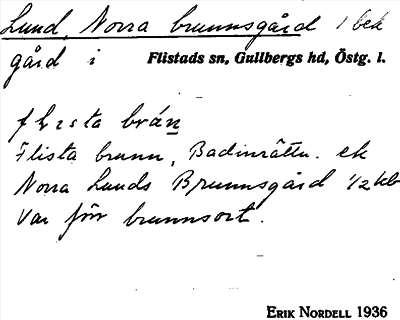 Lund, Norra brunnsgård 1 bek
gård i Flistads sn, Gullbergs hd, Östg. l.
flista brán
Flista brunn, Badinrättn. ek
Norra Lunds Brunnsgård 1/2 kb
Var förr brunnsort.
ERIK NORDELL 1936